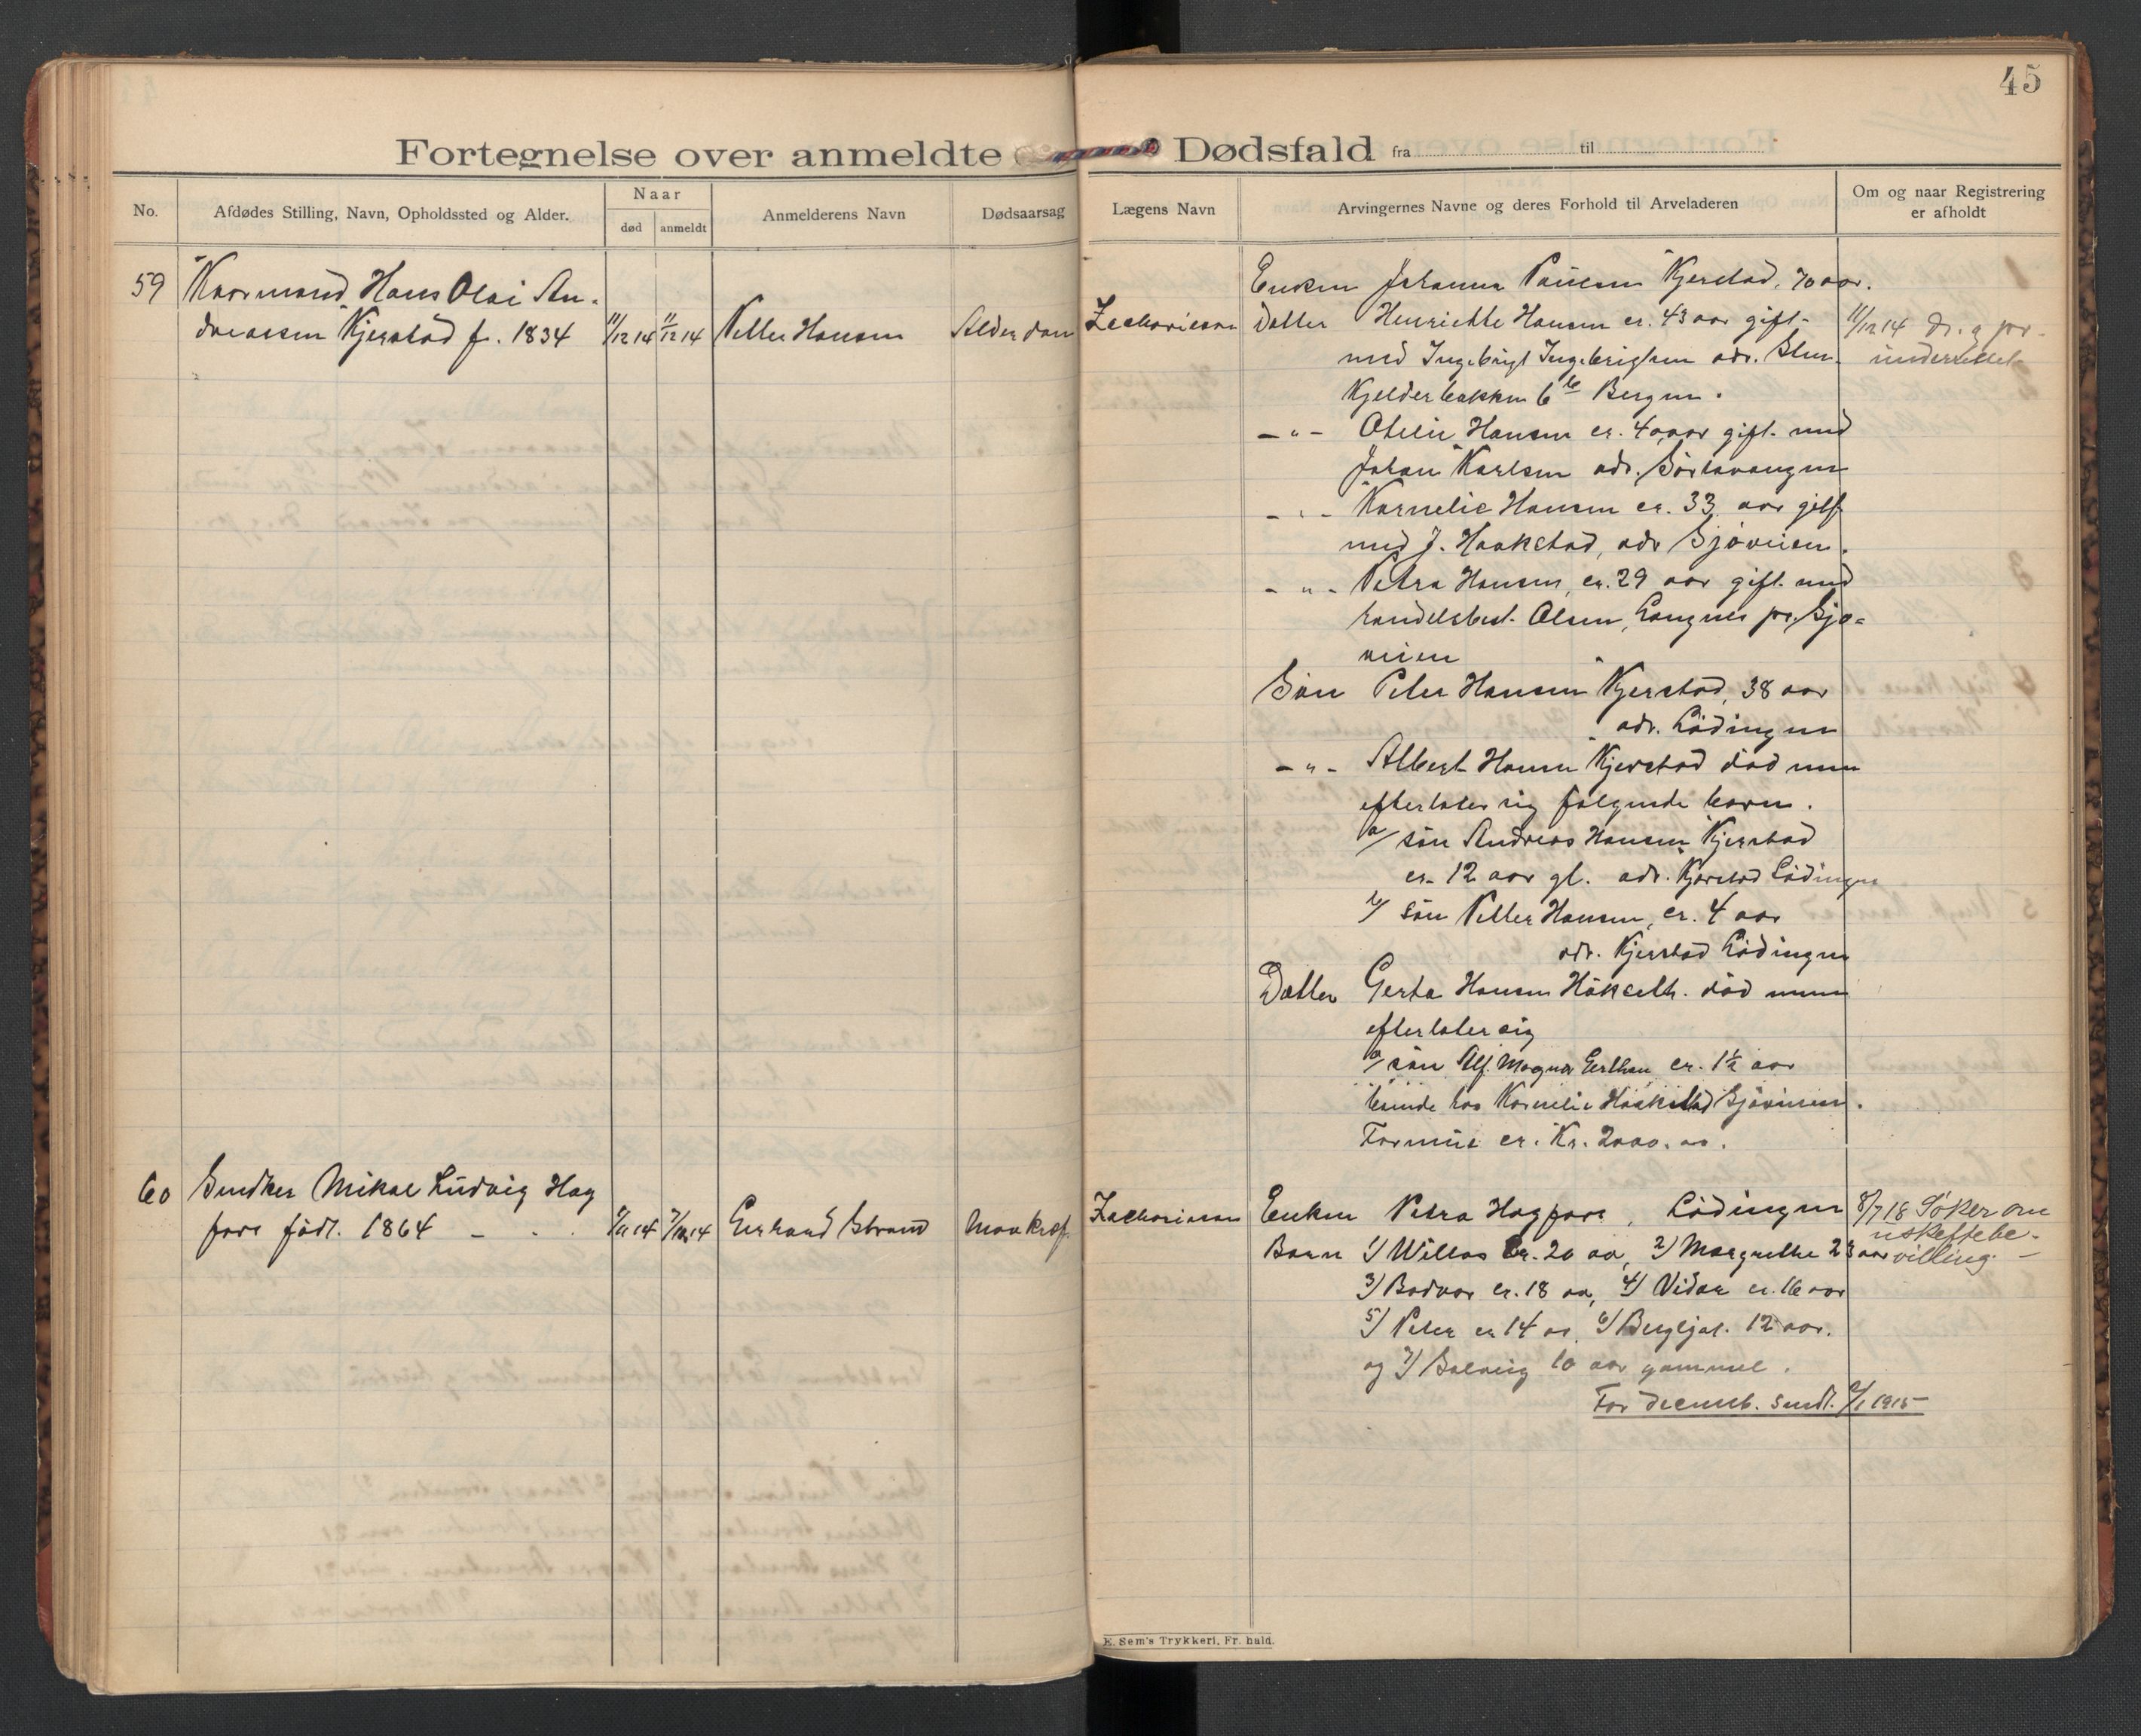 45
Fortegnelse over anmeldte Dødsfald fra til
No.
Afdødes Stilling, Navn, Opholdssted og Alder.
Naar
død
anmeldt
Anmelderens Navn
Dødsaarsag
Lægens Navn
Arvingernes Navne og deres Forhold til Arveladeren
Om og naar Registrering
er afholdt
59
Kaarmand Hans Olai An-
dreassen Kjerstad f. 1834
11/12 14
11/12 14
Petter Hansen
Alderdom
Zachariesen
Enken Johanna Paulsen Kjerstad, 70 aar.
Datter Henriette Hansen er. 43 aar gift-
med Ingebrigt Ingebrigtsen adr. Sten-
kjelderbakken 6 b Bergen.
- " - Otelie Hansen er. 40 aar gift med
Johan Karlsen adr. Sörlavangen
- " - Kornelie Hansen er. 33 aar gift
med J. Haakstad, adr Sjöveien.
- " - Petra Hansen, er. 29 aar gift med
handelsbest. Olsen, Langnes pr. Sjö-
veien
Sön Peter Hansen Kjerstad, 38 aar
adr. Lödingen
- " - Albert Hansen Kjerstad död men
efterlater sig følgende barn.
a/ sön Andreas Hansen Kjerstad
er 12 aar gl. adr. Kjerstad Lödingen
b/ sön Petter Hansen, er. 4 aar
adr. Kjerstad Lödingen
Datter Gerda Hansen död men
efterlater sig
a/ sön Alf Magnar er. 1½ aar
boende hos Kornelie Haakstad Sjöveien.
Formue er. Kr. 2000.00.
11/12 14
underrettet
60
Snedker Mikal Ludvig Hag
fors födt. 1864 - . .
14
7/12 14
Gerhard Strand
Mavekref.
Zachariesen
Enken Petra Hagfors, Lödingen
Barn 1/ Willas er. 20 aa, 2/ Margrethe 23 aar
3/ Bodvar er. 18 aa, 4/ Vidar er. 16 aar
5/ Peter er 14 aa, 6/ Bergljot. 12 aar.
og 7/ Solveig 10 aar gammel.
For decemb. sendt. 2/1 1915 -
8/7 18 Söker om
uskiftebe-
villing. -
E. Sem's Trykkeri, Fr.hald.